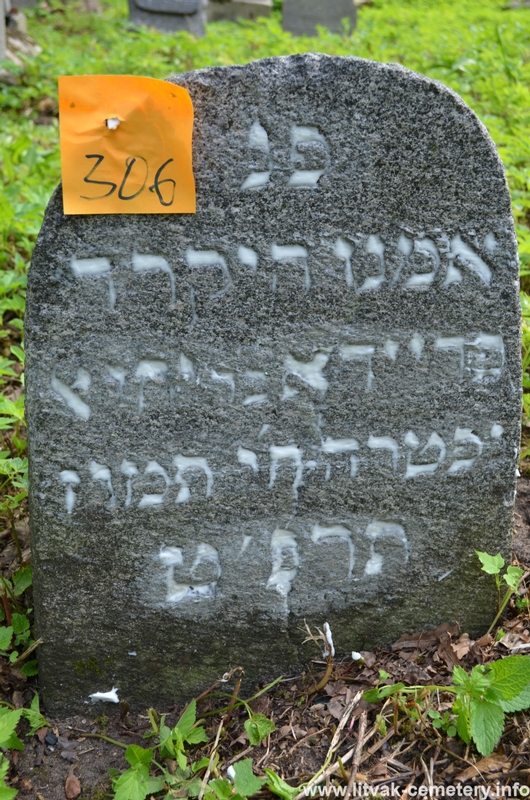 306
פנ
אמנו היקרה
פרידא
נפטרה חי תמוז
תרצ'ט
www.litvak-cemetery.info